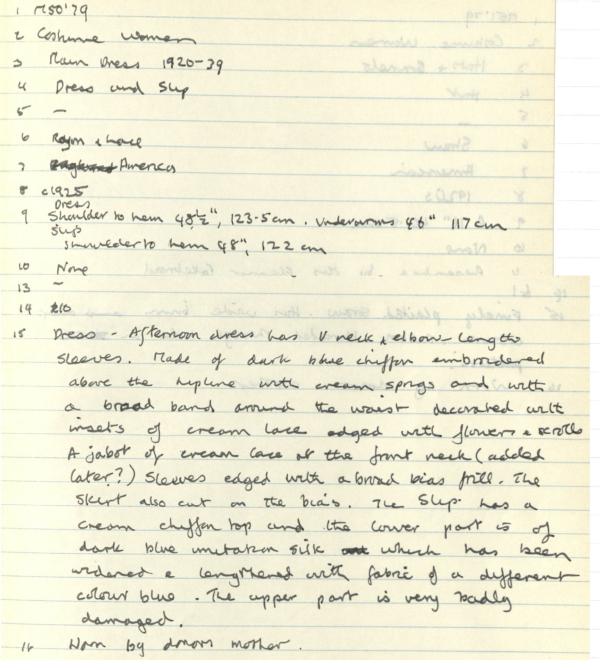 1 M50'79
2 Costume Women
3 Main Dress 1920-39
4 Dress and Slip
5 -
6 Rayon & Lace
7 America
8 c1925
Dress
9 Shoulder to hem 48½", 123.5cm. Underarms 46" 117cm
Slip
shoulder to hem 48", 122 cm
10 None
13 -
14 £10
15 Dress - Afternoon dress has V neck & elbow-length
sleeves. Made of dark blue chiffon embroidered
above the hipline with cream sprigs and with
a broad band around the waist decorated with
insets of cream lace edged with flowers & scrolls
A jabot of cream lace at the front neck (added
later?) Sleeves edged with a broad bias frill. The
skirt also cut on the bias. The Slip has a
cream chiffon top and the lower part is of
dark blue imitation silk which has been
widened & lengthened with fabric of a different
colour blue. The upper part is very badly
damaged.
16 Worn by donors mother.